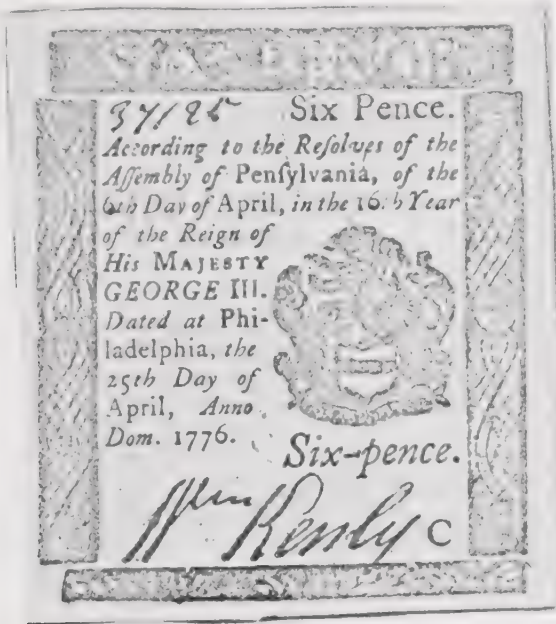 SIX PENCE
37125 Six Pence.
According to the Reſolves of the
Aſſembly of Penſylvania, of the
6th Day of April, in the 16th Year
of the Reign of
His MAJESTY
GEORGE III.
Dated at Phi-
ladelphia, the
25th Day of
April, Anno
Dom. 1776.
Six-pence.
Wm C